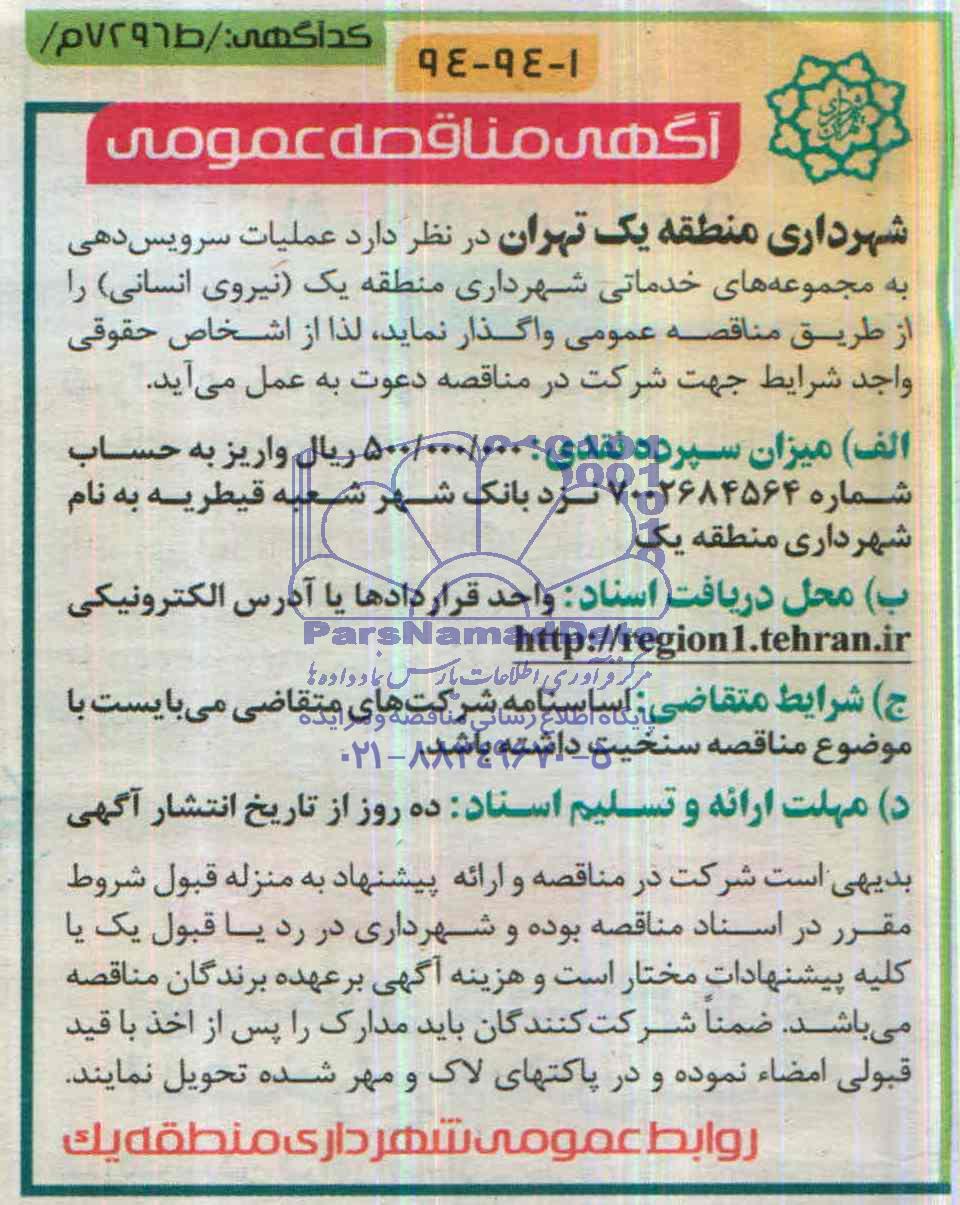 کدآگهی:/ط۷۲۹۶م/
۹۴-۹۴-۱
شهرداری تهران
آگهی مناقصه عمومی
شهرداری منطقه یک تهران در نظر دارد عملیات سرویس‌دهی
به مجموعه‌های خدماتی شهرداری منطقه یک (نیروی انسانی) را
از طریق مناقصه عمومی واگذار نماید، لذا از اشخاص حقوقی
واجد شرایط جهت شرکت در مناقصه دعوت به عمل می‌آید.
الف) میزان سپرده نقدی: ۵۰۰/۰۰۰/۰۰۰ ریال واریز به حساب
شماره ۷۰۰۲۶۸۴۵۶۴ نزد بانک شهر شعبه قیطریه به نام
شهرداری منطقه یک
ب) محل دریافت اسناد: واحد قراردادها یا آدرس الکترونیکی
http://region1.tehran.ir
ParsNamadData
مرکز فرآوری اطلاعات پارس نماد داده‌ها
ج) شرایط متقاضی: اساسنامه شرکت‌های متقاضی می‌بایست با
پایگاه اطلاع رسانی مناقصه و مزایده
موضوع مناقصه سنخیت داشته باشد.
۰۲۱-۸۸۳۴۹۶۷۰-۵
د) مهلت ارائه و تسلیم اسناد: ده روز از تاریخ انتشار آگهی
بدیهی است شرکت در مناقصه و ارائه پیشنهاد به منزله قبول شروط
مقرر در اسناد مناقصه بوده و شهرداری در رد یا قبول یک یا
کلیه پیشنهادات مختار است و هزینه آگهی برعهده برندگان مناقصه
می‌باشد. ضمناً شرکت‌کنندگان باید مدارک را پس از اخذ با قید
قبولی امضاء نموده و در پاکتهای لاک و مهر شده تحویل نمایند.
روابط عمومی شهرداری منطقه یك